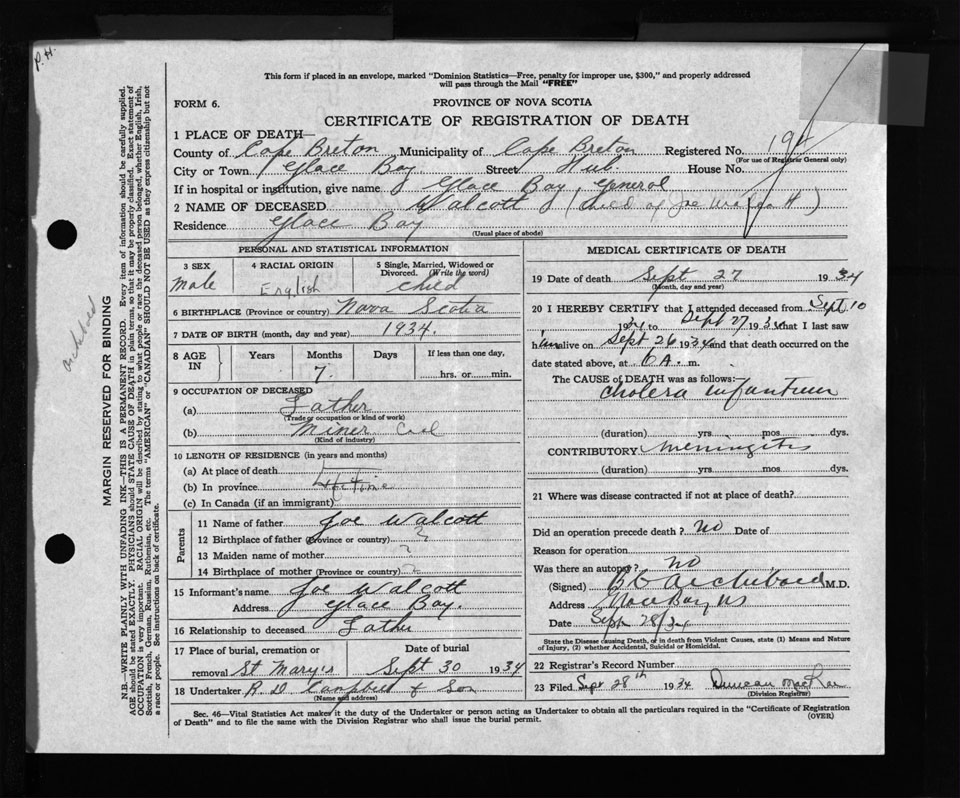 P.H.
This form if placed in an envelope, marked "Dominion Statistics—Free, penalty for improper use, $300," and properly addressed
will pass through the Mail "FREE"
FORM 6.
PROVINCE OF NOVA SCOTIA
CERTIFICATE OF REGISTRATION OF DEATH
1 PLACE OF DEATH—
County of Cape Breton Municipality of Cape Breton Registered No.
(For use of Registrar General only)
City or Town Glace Bay Street Hub. House No.
If in hospital or institution, give name Glace Bay General
2 NAME OF DECEASED Walcott (child of Joe Walcott)
Residence Glace Bay
(Usual place of abode)
PERSONAL AND STATISTICAL INFORMATION
3 SEX
Male
4 RACIAL ORIGIN
English
5 Single, Married, Widowed or
Divorced. (Write the word)
child
6 BIRTHPLACE (Province or country) Nova Scotia
7 DATE OF BIRTH (month, day and year) 1934.
8 AGE IN
Years Months Days If less than one day,
7. hrs. or min.
9 OCCUPATION OF DECEASED
(a) Father
(Trade or occupation or kind of work)
(b) Miner Coal
(Kind of industry)
10 LENGTH OF RESIDENCE (in years and months)
(a) At place of death
(b) In province Life time
(c) In Canada (if an immigrant)
Parents
11 Name of father Joe Walcott
12 Birthplace of father (Province or country) ?
13 Maiden name of mother ?
14 Birthplace of mother (Province or country) ?
15 Informant's name Joe Walcott
Address Glace Bay.
16 Relationship to deceased Father
17 Place of burial, cremation or Date of burial
removal St Mary's Sept 30 1934
18 Undertaker R. D. Campbell & Son
(Name and address)
MEDICAL CERTIFICATE OF DEATH
19 Date of death Sept 27 1934
(Month, day and year)
20 I HEREBY CERTIFY that I attended deceased from Sept. 10
1934 to Sept 27 1934 that I last saw
him alive on Sept 26 1934 and that death occurred on the
date stated above, at 6 A. m.
The CAUSE of DEATH was as follows:
Cholera infantum
(duration) yrs mos dys.
CONTRIBUTORY Meningitis
(duration) yrs. mos. dys.
21 Where was disease contracted if not at place of death?
Did an operation precede death? No Date of
Reason for operation
Was there an autopsy? no
(Signed) Archibald M.D.
Address Glace Bay, NS
Date Sept 28/34
State the Disease causing Death, or in death from Violent Causes, state (1) Means and Nature
of Injury, (2) whether Accidental, Suicidal or Homicidal.
22 Registrar's Record Number
23 Filed Sept 28th 1934 Duncan MacRae
(Division Registrar)
Sec. 46—Vital Statistics Act makes it the duty of the Undertaker or person acting as Undertaker to obtain all the particulars required in the "Certificate of Registration
of Death" and to file the same with the Division Registrar who shall issue the burial permit. (OVER)
Archibald
MARGIN RESERVED FOR BINDING
N.B.—WRITE PLAINLY WITH UNFADING INK—THIS IS A PERMANENT RECORD. Every item of information should be carefully supplied.
AGE should be stated EXACTLY. PHYSICIANS should STATE CAUSE OF DEATH in plain terms, so that it may be properly classified. Exact statement of
OCCUPATION is very important. RACIAL ORIGIN will be described by stating to what people or race the deceased person belonged, whether English, Irish,
Scottish, French, German, Russian, Ruthenian, etc. The terms "AMERICAN" or "CANADIAN" SHOULD NOT BE USED as they express citizenship but not
a race or people. See instructions on back of certificate.